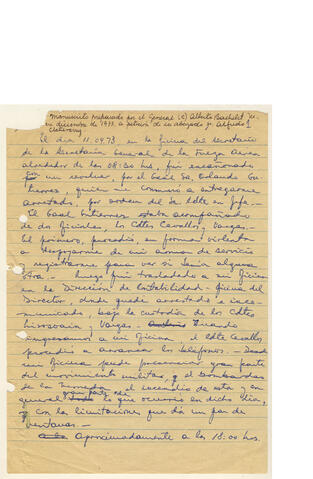 manuscrito preparado por el General (R) Alberto Bachelet M.
en diciembre de 1973 a petición de su abogado Sr. Alfredo
Etcheberry 1
El día 11.09.73, en la oficina del Secretario
de la Secretaría General de la Fuerza Aérea
alrededor de las 08:30 hrs, fuí encañonado
con un revólver, por el Gral Sr. Orlando Gu-
tierrez, quien me conminó a entregarme
arrestado, por orden del Sr Cdte en Jefe.-
El Gral Gutierrez estaba acompañado
de dos oficiales, los Cdtes Cevallos, Vargas.-
El primero, procedió en forma violenta
a despojarme de mi arma de servicio
y registrarme para ver si tenía alguna
otra.- Luego fuí trasladado a mi oficina
en la Dirección de Contabilidad - oficina del
Director, donde quedé arrestado e inco-
municado, bajo la custodia de los Cdtes
y Vargas.- Cuando
ingresamos a mi oficina, el Cdte Cevallos
procedió a arrancar los teléfonos.- Desde
mi oficina pude presenciar gran parte
del movimiento militar y el bombardeo
de la Moneda, el incendio de ésta y en
general gran parte de lo que ocurrió en dicho día,
con las limitaciones que dá un par de
ventanas.-
Aproximadamente a las 18:00 hrs.